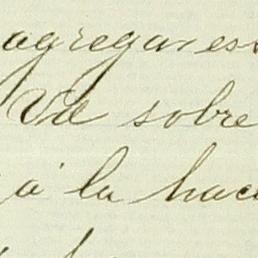 agregar es
Vd sobre
á la hac